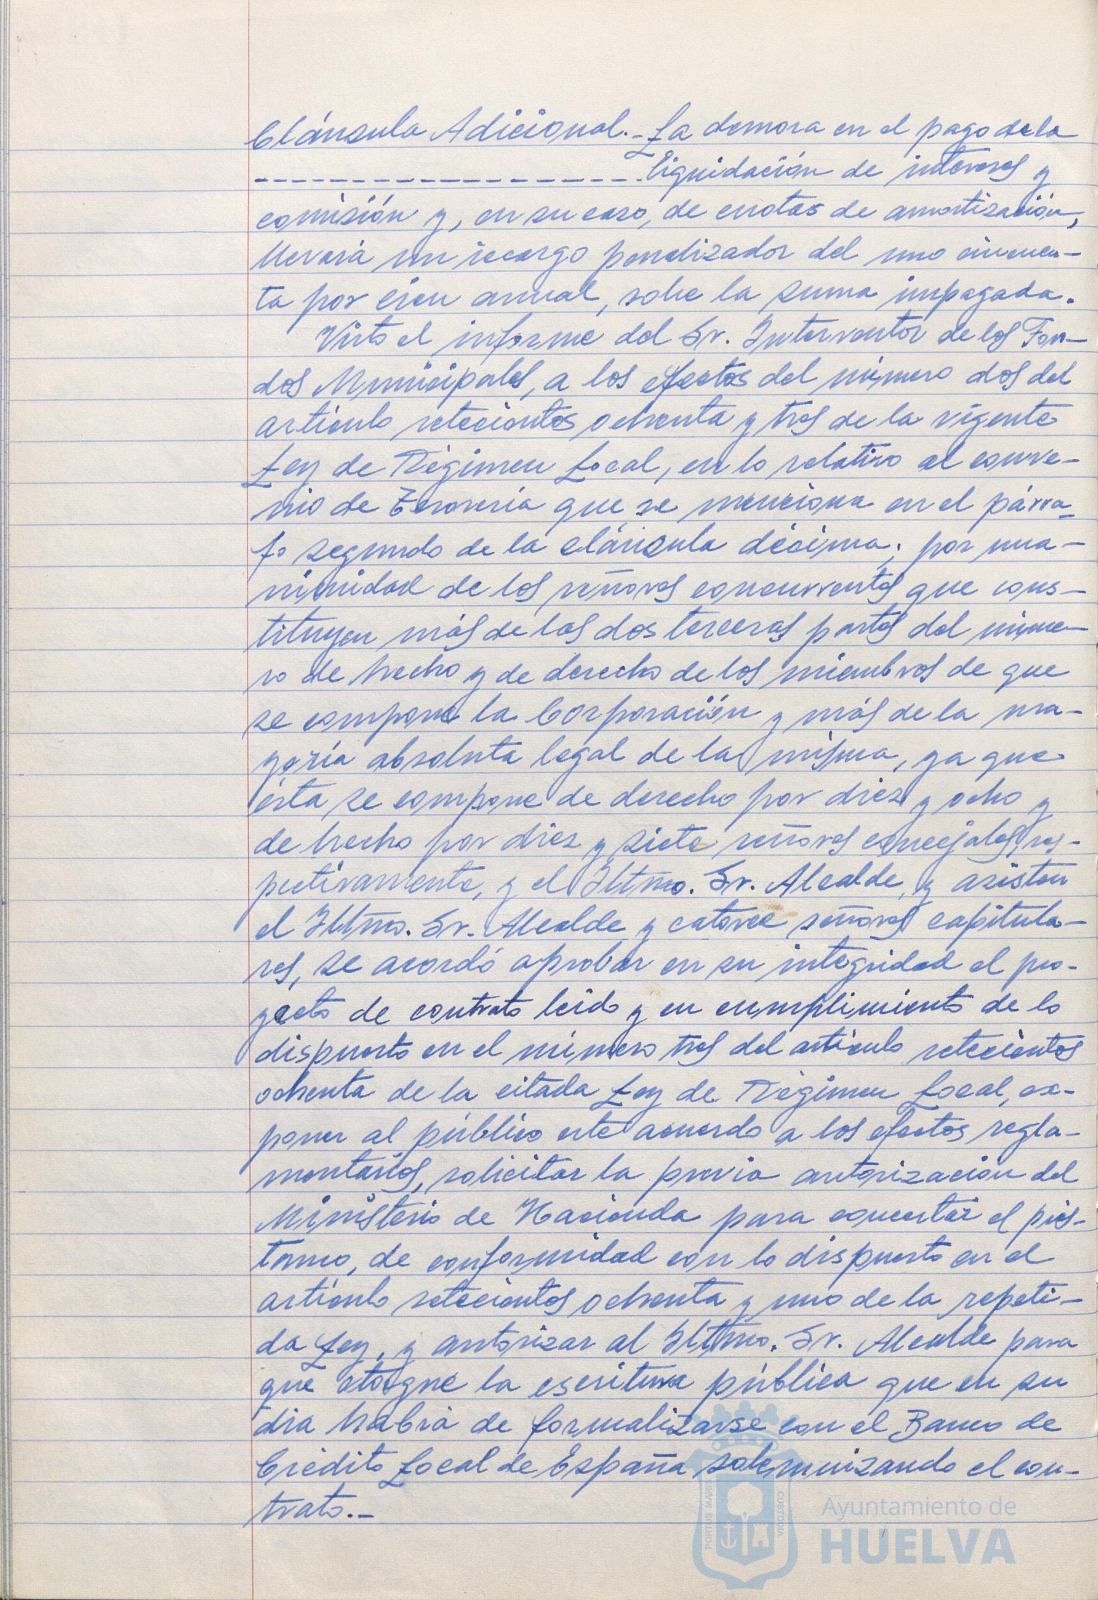 Cláusula Adicional.- La demora en el pago de la
------------------.liquidación de intereses y
comisión y, en su caso, de cuotas de amortización,
llevará un recargo penalizador del uno cincuen-
ta por cien anual, sobre la suma impagada.
Visto el informe del Sr. Interventor de los Fon-
dos Municipales, a los efectos del número dos del
artículo setecientos ochenta y tres de la vigente
Ley de Régimen Local, en lo relativo al conve-
nio de Tesorería que se menciona en el párra-
fo segundo de la cláusula décima; por una-
nimidad de los señores concurrentes que cons-
tituyen más de las dos terceras partes del núme-
ro de hecho y de derecho de los miembros de que
se compone la Corporación y más de la ma-
yoría absoluta legal de la misma, ya que
ésta se compone de derecho por diez y ocho y
de hecho por diez y siete señores concejales, res-
pectivamente, y el Iltmo. Sr. Alcalde, y asisten
el Iltmo. Sr. Alcalde y catorce señores capitula-
res, se acordó aprobar en su integridad el pro-
yecto de contrato leído y en cumplimiento de lo
dispuesto en el número tres del artículo setecientos
ochenta de la citada Ley de Régimen Local, ex-
poner al público este acuerdo a los efectos regla-
mentarios, solicitar la previa autorización del
Ministerio de Hacienda para concertar el prés-
tamo, de conformidad con lo dispuesto en el
artículo setecientos ochenta y uno de la repeti-
da Ley, y autorizar al Iltmo. Sr. Alcalde para
que otorgue la escritura pública que en su
día habrá de formalizarse con el Banco de
Crédito Local de España solemnizando el con-
trato.-
PORTUS MARIS
CUSTODIA
Ayuntamiento de
HUELVA